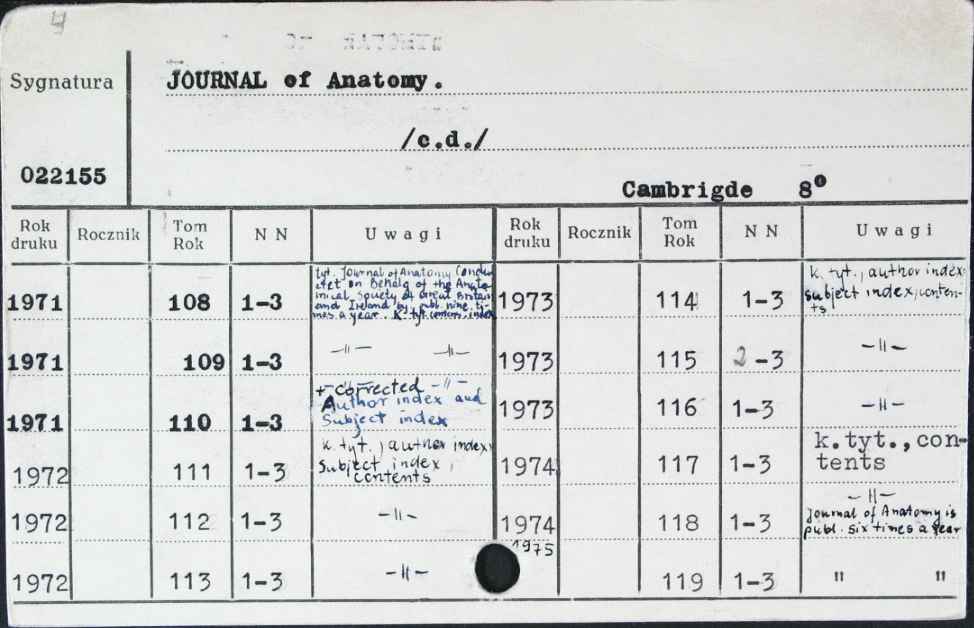 4
Sygnatura
JOURNAL of Anatomy.
/c.d./
022155
Cambrigde 8°
Rok druku Rocznik Tom Rok NN Uwagi Rok druku Rocznik Tom Rok NN Uwagi
1971 108 1-3
tyt. Journal of Anatomy Conduc
ctet on Behalg of the Anato
mical Society of Great Britain
and Ireland by publ. nine ti-
mes a year. K. tyt. contens, index
1971 109 1-3 -"- -"-
1971 110 1-3
+ corrected -"-
Author index and
Subject index
1972 111 1-3
k. tyt., author index,
subject index,
contents
1972 112 1-3 -"-
1972 113 1-3 -"-
1973 114 1-3
k. tyt., author index,
subject index, conten-
ts
1973 115 2-3 -"-
1973 116 1-3 -"-
1974 117 1-3
k.tyt.,con-
tents
1974 118 1-3
-"-
Journal of Anatomy is
publ. six times a year
1975 119 1-3 " "